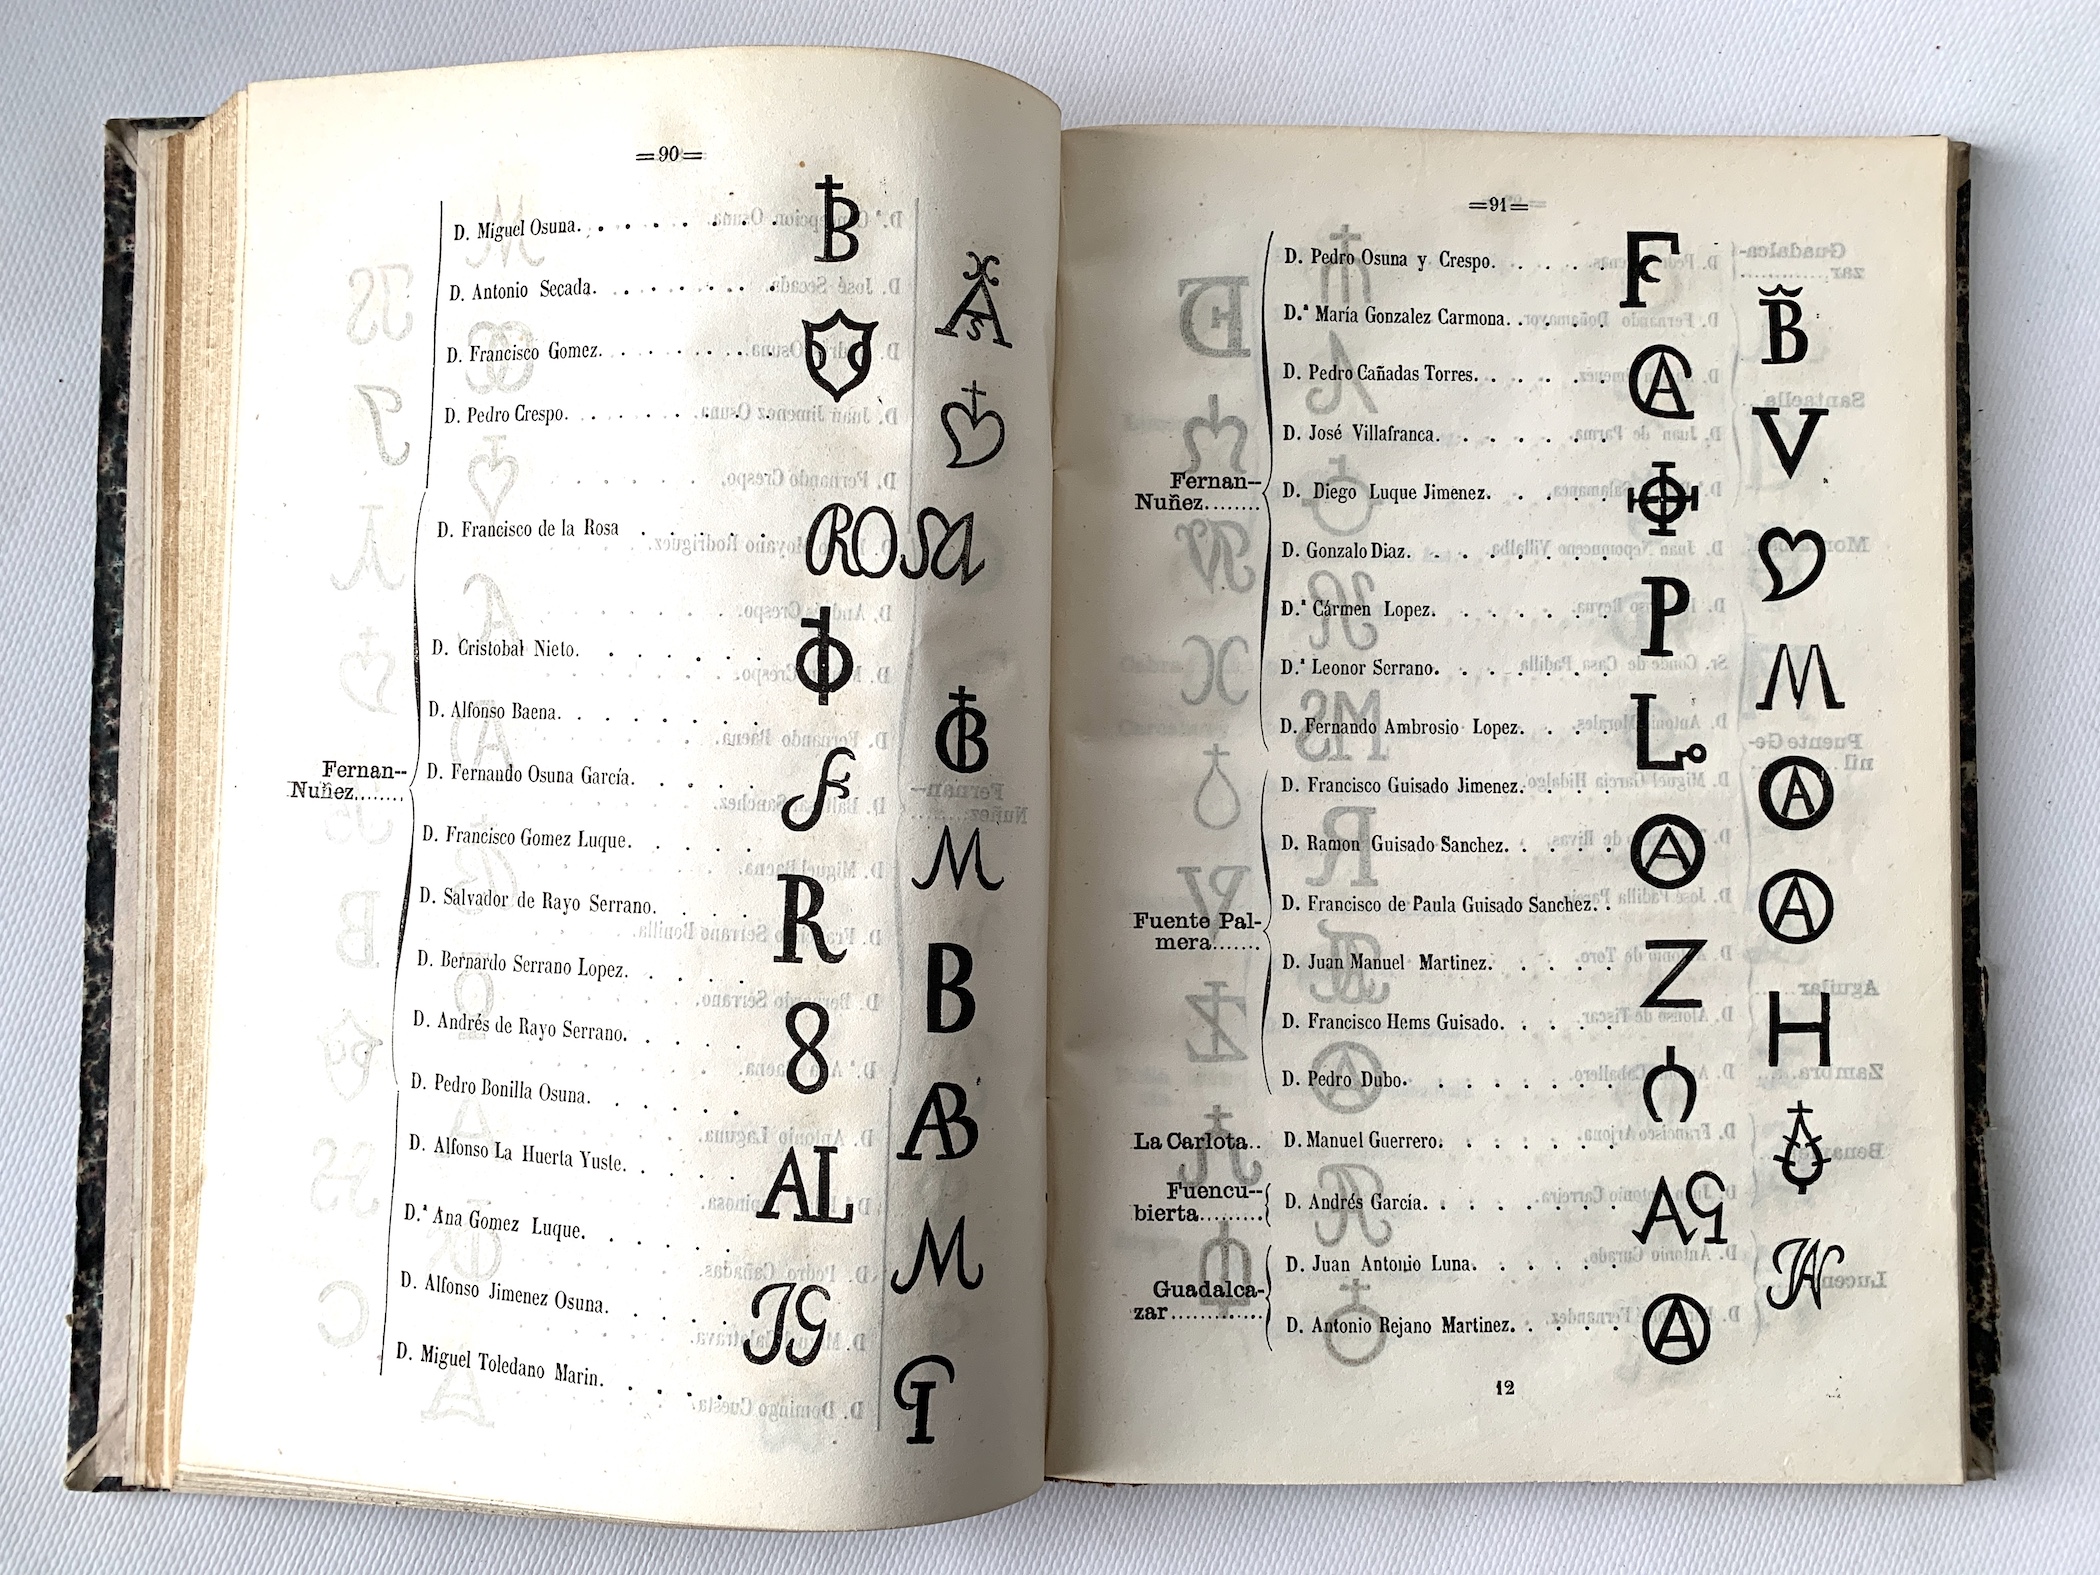 =90=
D. Miguel Osuna. B
D. Antonio Secada. A s
D. Francisco Gomez.
D. Pedro Crespo.
D. Francisco de la Rosa ROSA
D. Cristobal Nieto.
D. Alfonso Baena. B
Fernan-- D. Fernando Osuna García. F
Nuñez........
D. Francisco Gomez Luque. M
D. Salvador de Rayo Serrano. R
D. Bernardo Serrano Lopez. B
D. Andrés de Rayo Serrano. 8
D. Pedro Bonilla Osuna. AB
D. Alfonso La Huerta Yuste. AL
D.ª Ana Gomez Luque. M
D. Alfonso Jimenez Osuna. JG
D. Miguel Toledano Marin.
=91=
D. Pedro Osuna y Crespo. F
D.ª María Gonzalez Carmona. B
D. Pedro Cañadas Torres. A
D. José Villafranca. V
Fernan-- D. Diego Luque Jimenez.
Nuñez........
D. Gonzalo Diaz.
D.ª Cármen Lopez. P
D.ª Leonor Serrano. M
D. Fernando Ambrosio Lopez. L
D. Francisco Guisado Jimenez. A
D. Ramon Guisado Sanchez. A
D. Francisco de Paula Guisado Sanchez. A
Fuente Pal-
mera.......
D. Juan Manuel Martinez. Z
D. Francisco Hems Guisado. H
D. Pedro Dubo.
La Carlota.. D. Manuel Guerrero.
Fuencu-- D. Andrés García. AG
bierta.........
D. Juan Antonio Luna.
Guadalca-
zar.............
D. Antonio Rejano Martinez. A
12